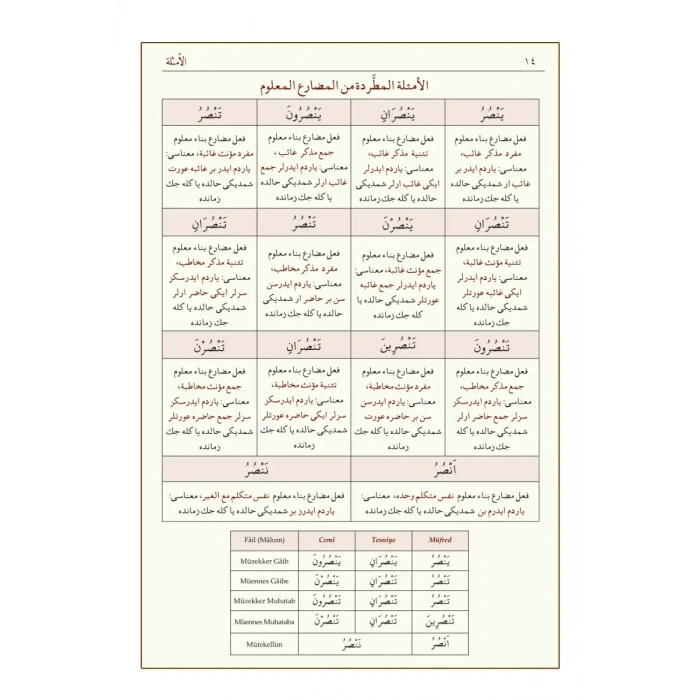 ١٤ الأمثلة
الأمثلة المطَّردة من المضارع المعلوم
يَنْصُرُ يَنْصُرَانِ يَنْصُرُونَ تَنْصُرُ
فعل مضارع بناء معلوم
مفرد مذكر غائب،
معناسى: ياردم ايدر بر
غائب ار شمديكى حالده
يا كله جك زمانده
فعل مضارع بناء معلوم
تثنية مذكر غائب،
معناسى: ياردم ايدرلر
ايكى غائب ارلر شمديكى
حالده يا كله جك زمانده
فعل مضارع بناء معلوم
جمع مذكر غائب،
معناسى: ياردم ايدرلر جمع
غائب ارلر شمديكى حالده
يا كله جك زمانده
فعل مضارع بناء معلوم
مفرد مؤنث غائبة، معناسى:
ياردم ايدر بر غائبه عورت
شمديكى حالده يا كله جك
زمانده
تَنْصُرَانِ يَنْصُرْنَ تَنْصُرُ تَنْصُرَانِ
فعل مضارع بناء معلوم
تثنية مؤنث غائبة،
معناسى: ياردم ايدرلر
ايكى غائبه عورتلر
شمديكى حالده يا كله
جك زمانده
فعل مضارع بناء معلوم
جمع مؤنث غائبة، معناسى:
ياردم ايدرلر جمع غائبه
عورتلر شمديكى حالده يا
كله جك زمانده
فعل مضارع بناء معلوم
مفرد مذكر مخاطب،
معناسى: ياردم ايدرسن
سن بر حاضر ار شمديكى
حالده يا كله جك زمانده
فعل مضارع بناء معلوم
تثنية مذكر مخاطب،
معناسى: ياردم ايدرسكز
سزلر ايكى حاضر ارلر
شمديكى حالده يا كله
جك زمانده
تَنْصُرُونَ تَنْصُرِينَ تَنْصُرَانِ تَنْصُرْنَ
فعل مضارع بناء معلوم
جمع مذكر مخاطب،
معناسى: ياردم ايدرسكز
سزلر جمع حاضر ارلر
شمديكى حالده يا كله جك
زمانده
فعل مضارع بناء معلوم
مفرد مؤنث مخاطبة،
معناسى: ياردم ايدرسن
سن بر حاضره عورت
شمديكى حالده يا كله جك
زمانده
فعل مضارع بناء معلوم
تثنية مؤنث مخاطبة،
معناسى: ياردم ايدرسكز
سزلر ايكى حاضره عورتلر
شمديكى حالده يا كله جك
زمانده
فعل مضارع بناء معلوم
جمع مؤنث مخاطبة،
معناسى: ياردم ايدرسكز
سزلر جمع حاضره عورتلر
شمديكى حالده يا كله جك
زمانده
اَنْصُرُ نَنْصُرُ
فعل مضارع بناء معلوم نفس متكلم وحده، معناسى:
ياردم ايدرم بن شمديكى حالده يا كله جك زمانده
فعل مضارع بناء معلوم نفس متكلم مع الغير، معناسى:
ياردم ايدرز بز شمديكى حالده يا كله جك زمانده
Fâil (Mâlum) Cemî Tesniye Müfred
Müzekker Gâib يَنْصُرُونَ يَنْصُرَانِ يَنْصُرُ
Müennes Gâibe يَنْصُرْنَ تَنْصُرَانِ تَنْصُرُ
Müzekker Muhatab تَنْصُرُونَ تَنْصُرَانِ تَنْصُرُ
Müennes Muhataba تَنْصُرْنَ تَنْصُرَانِ تَنْصُرِينَ
Mütekellim نَنْصُرُ اَنْصُرُ